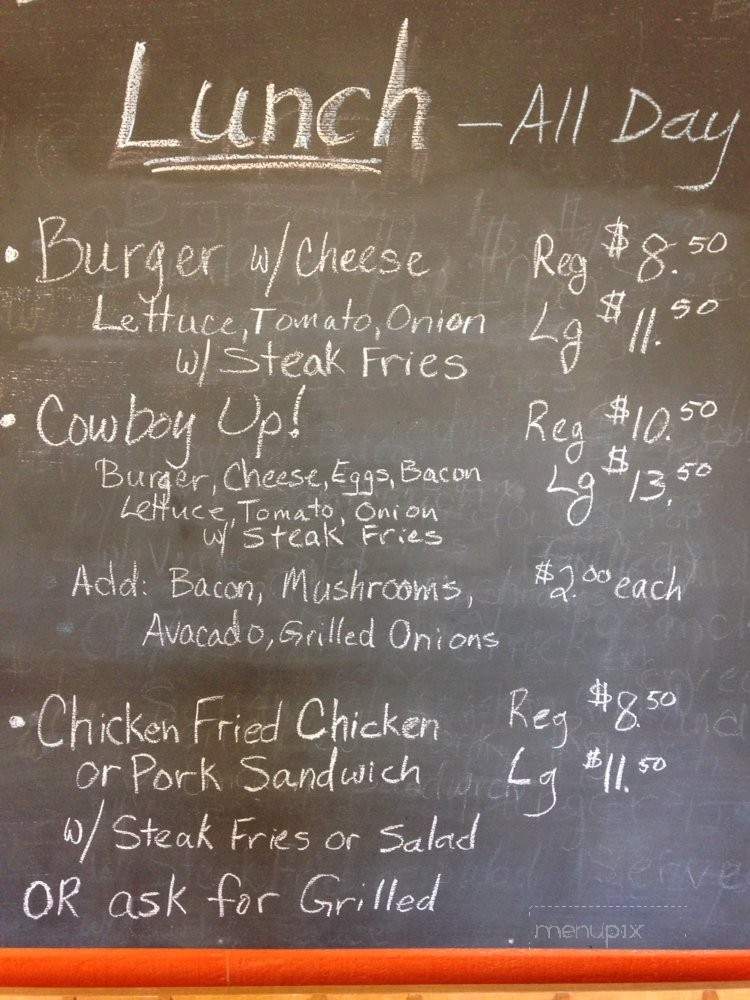 Lunch - All Day
• Burger w/ Cheese Reg $8.50
Lettuce, Tomato, Onion Lg $11.50
w/ Steak Fries
• Cowboy Up! Reg $10.50
Burger, Cheese, Eggs, Bacon Lg $13.50
Lettuce, Tomato, Onion
w/ Steak Fries
Add: Bacon, Mushrooms, $2.00 each
Avacado, Grilled Onions
• Chicken Fried Chicken Reg $8.50
or Pork Sandwich Lg $11.50
w/ Steak Fries or Salad
OR ask for Grilled
menupix